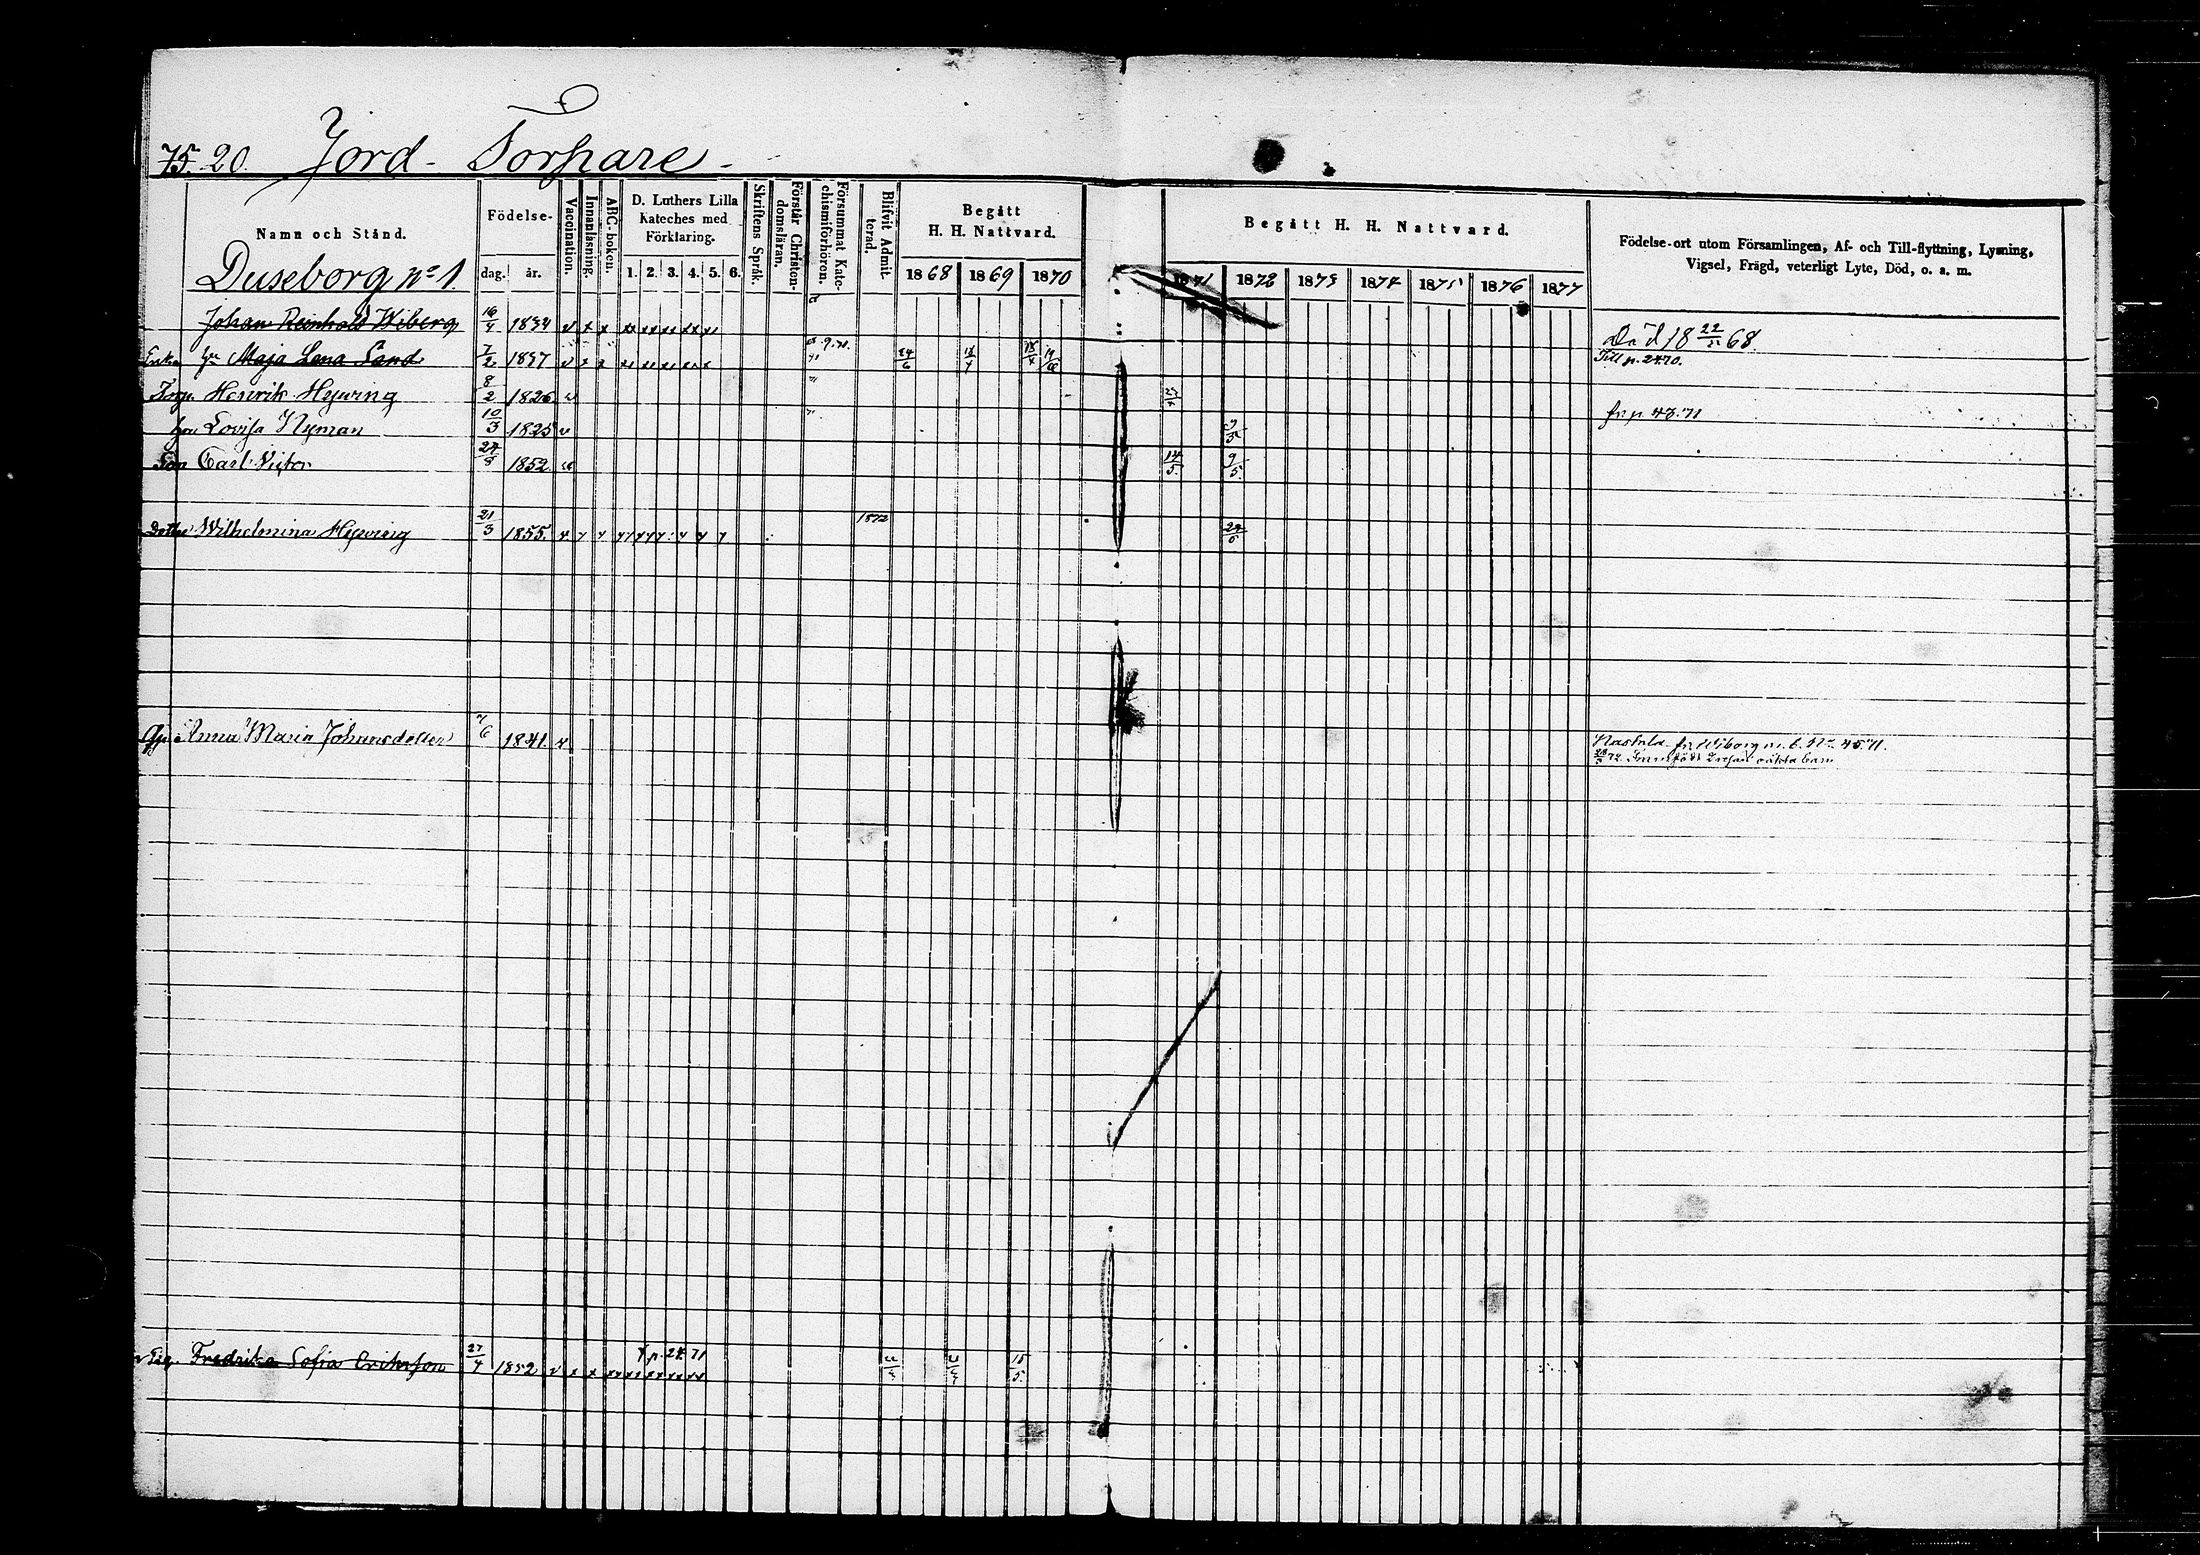 75. 20. Jord- Torpare.
Namn och Stånd.
Födelse-
dag. år.
Vaccination.
Innanläsning.
ABC-boken.
D. Luthers Lilla
Kateches med
Förklaring.
1. 2. 3. 4. 5. 6.
Skriftens Språk.
Förstår Christen-
domsläran.
Försummat Kate-
chismiförhören.
Blifvit Admit-
terad.
Begått
H. H. Nattvard.
1868 1869 1870
Begått H. H. Nattvard.
1871 1872 1873 1874 1875 1876 1877
Födelse-ort utom Församlingen, Af- och Till-flyttning, Lysning,
Vigsel, Frägd, veterligt Lyte, Död, o. a. m.
Duseborg No 1
Johan Reinhold Wiberg 16/4 1834 Död 18 22/11 68.
Enka hu Maja Lena Sand 7/2 1837 24/6 Till p. 24.70.
Torp. Henrik Hejvring 8/2 1826
hu Lovisa Nyman 10/3 1825 9/5 fr. p. 43.71
Son Carl Victor 24/8 1852 14/5. 9/5.
Dotter Wilhelmina Hejvring 21/3 1855. 1872
Anna Maria Johansdotter 1841. Nastola. fr. Wiborg m. b. No 45.71.
Pig. Fredrika Sofia Erikson 27/4 1852 T. p. 24.71 15/5.